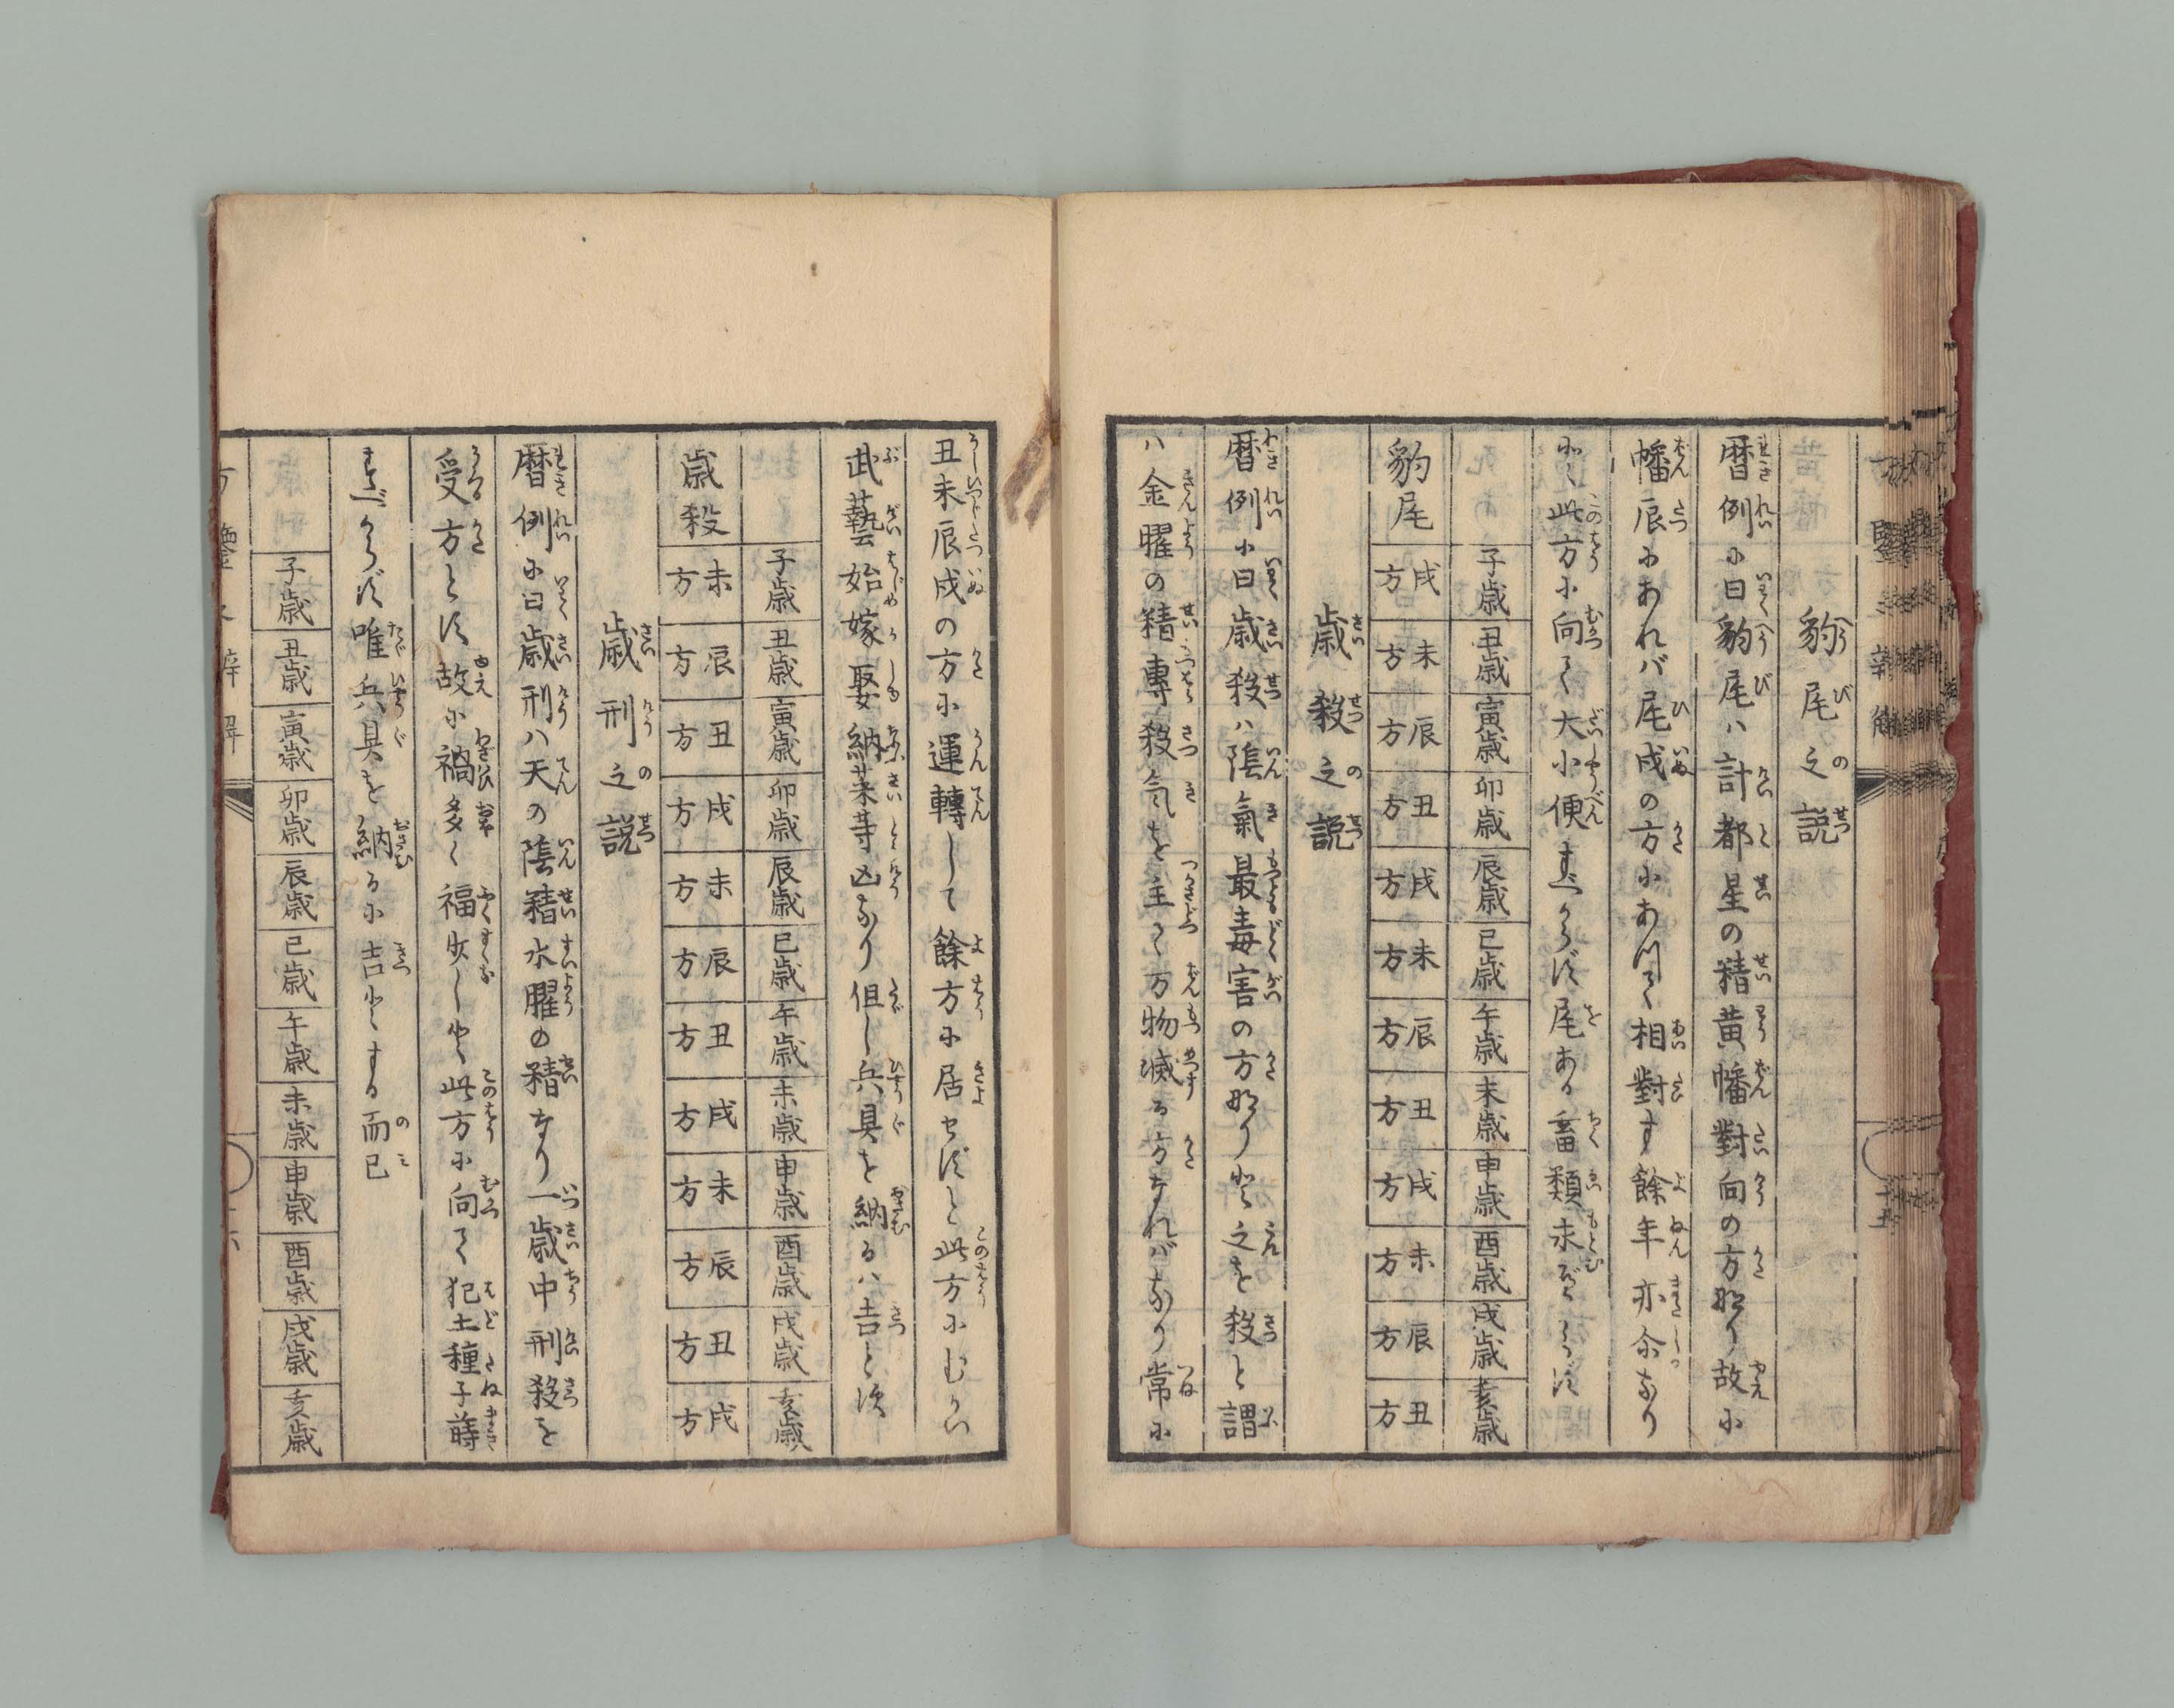 豹尾之説
暦例に曰豹尾ハ計都星の精黄幡對向の方なり故に
幡辰にあれバ尾戌の方にあつて相對す餘年亦尓なり
此方に向て大小便すべからず尾ある畜類求べからず
子歳 丑歳 寅歳 卯歳 辰歳 巳歳 午歳 未歳 申歳 酉歳 戌歳 亥歳
豹尾 戌方 未方 辰方 丑方 戌方 未方 辰方 丑方 戌方 未方 辰方 丑方
歳殺之説
暦例に曰歳殺ハ陰氣最毒害の方なりと之を殺と謂
ハ金曜の精專殺気を主て万物滅る方なれバなり常に
丑未辰戌の方に運轉して餘方に居せずと此方にむかい
武藝始嫁娶納菜等凶なり但し兵具を納るハ吉とす
子歳 丑歳 寅歳 卯歳 辰歳 巳歳 午歳 未歳 申歳 酉歳 戌歳 亥歳
歳殺 未方 辰方 丑方 戌方 未方 辰方 丑方 戌方 未方 辰方 丑方 戌方
歳刑之説
暦例に曰歳刑ハ天の陰精水曜の精なり一歳中刑殺を
受方とす故に禍多く福少しと此方に向て犯土種子蒔
すべからず唯兵具を納るに吉とする而已
子歳 丑歳 寅歳 卯歳 辰歳 巳歳 午歳 未歳 申歳 酉歳 戌歳 亥歳